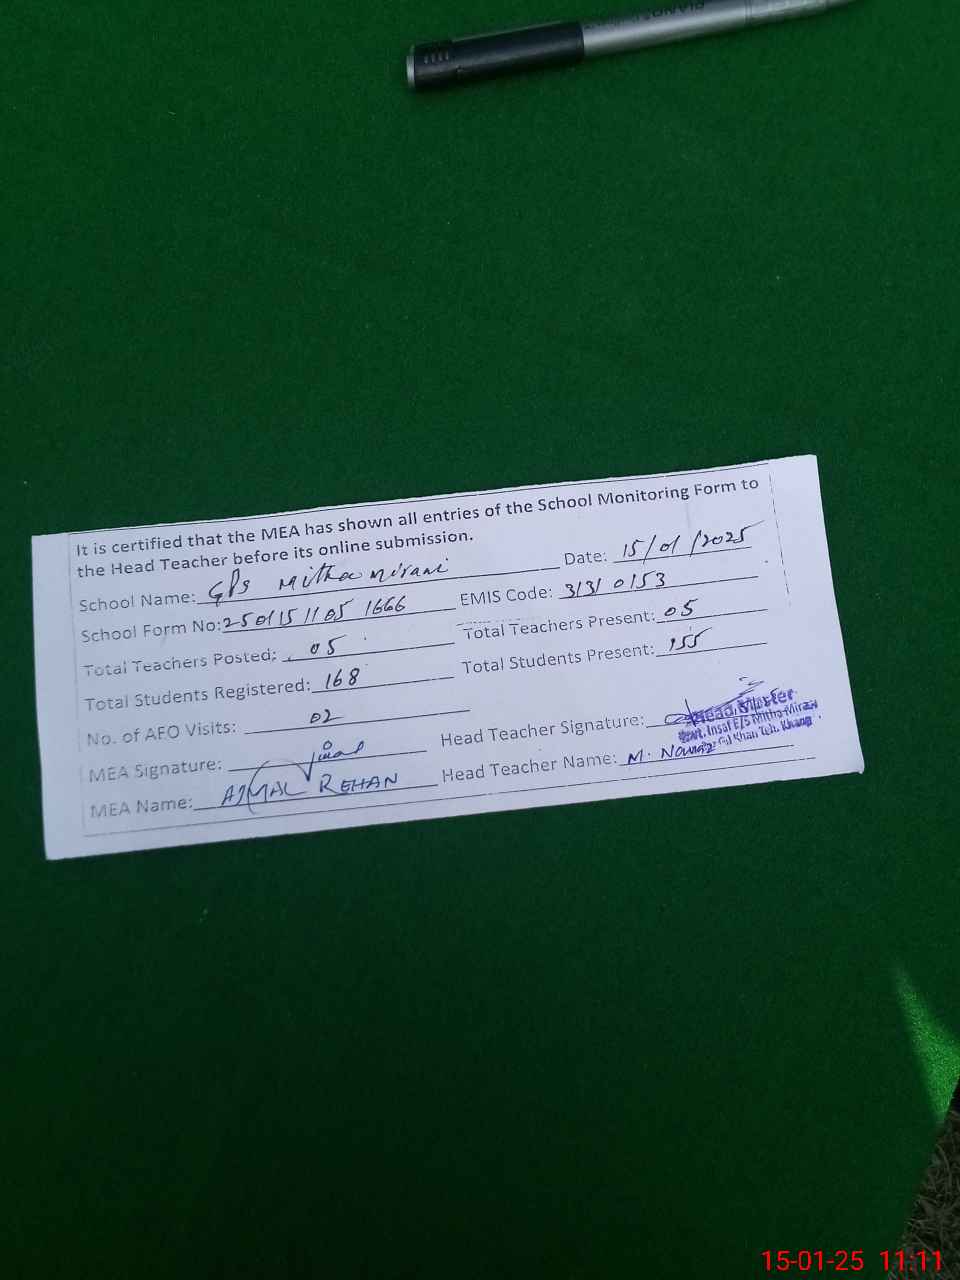 PIANO
It is certified that the MEA has shown all entries of the School Monitoring Form to
the Head Teacher before its online submission.
School Name: GPS Mitha mirani Date: 15/01/2025
School Form No: 25011511051666 EMIS Code: 31310153
Total Teachers Posted: 05 Total Teachers Present: 05
Total Students Registered: 168 Total Students Present: 155
No. of AEO Visits: 02
MEA Signature: Head Teacher Signature:
Head Master
Govt. Insaf E/S Mitha Miran
Khan Teh. Khang
MEA Name: AJMAL REHAN Head Teacher Name: M. Nawaz
15-01-25 11:11